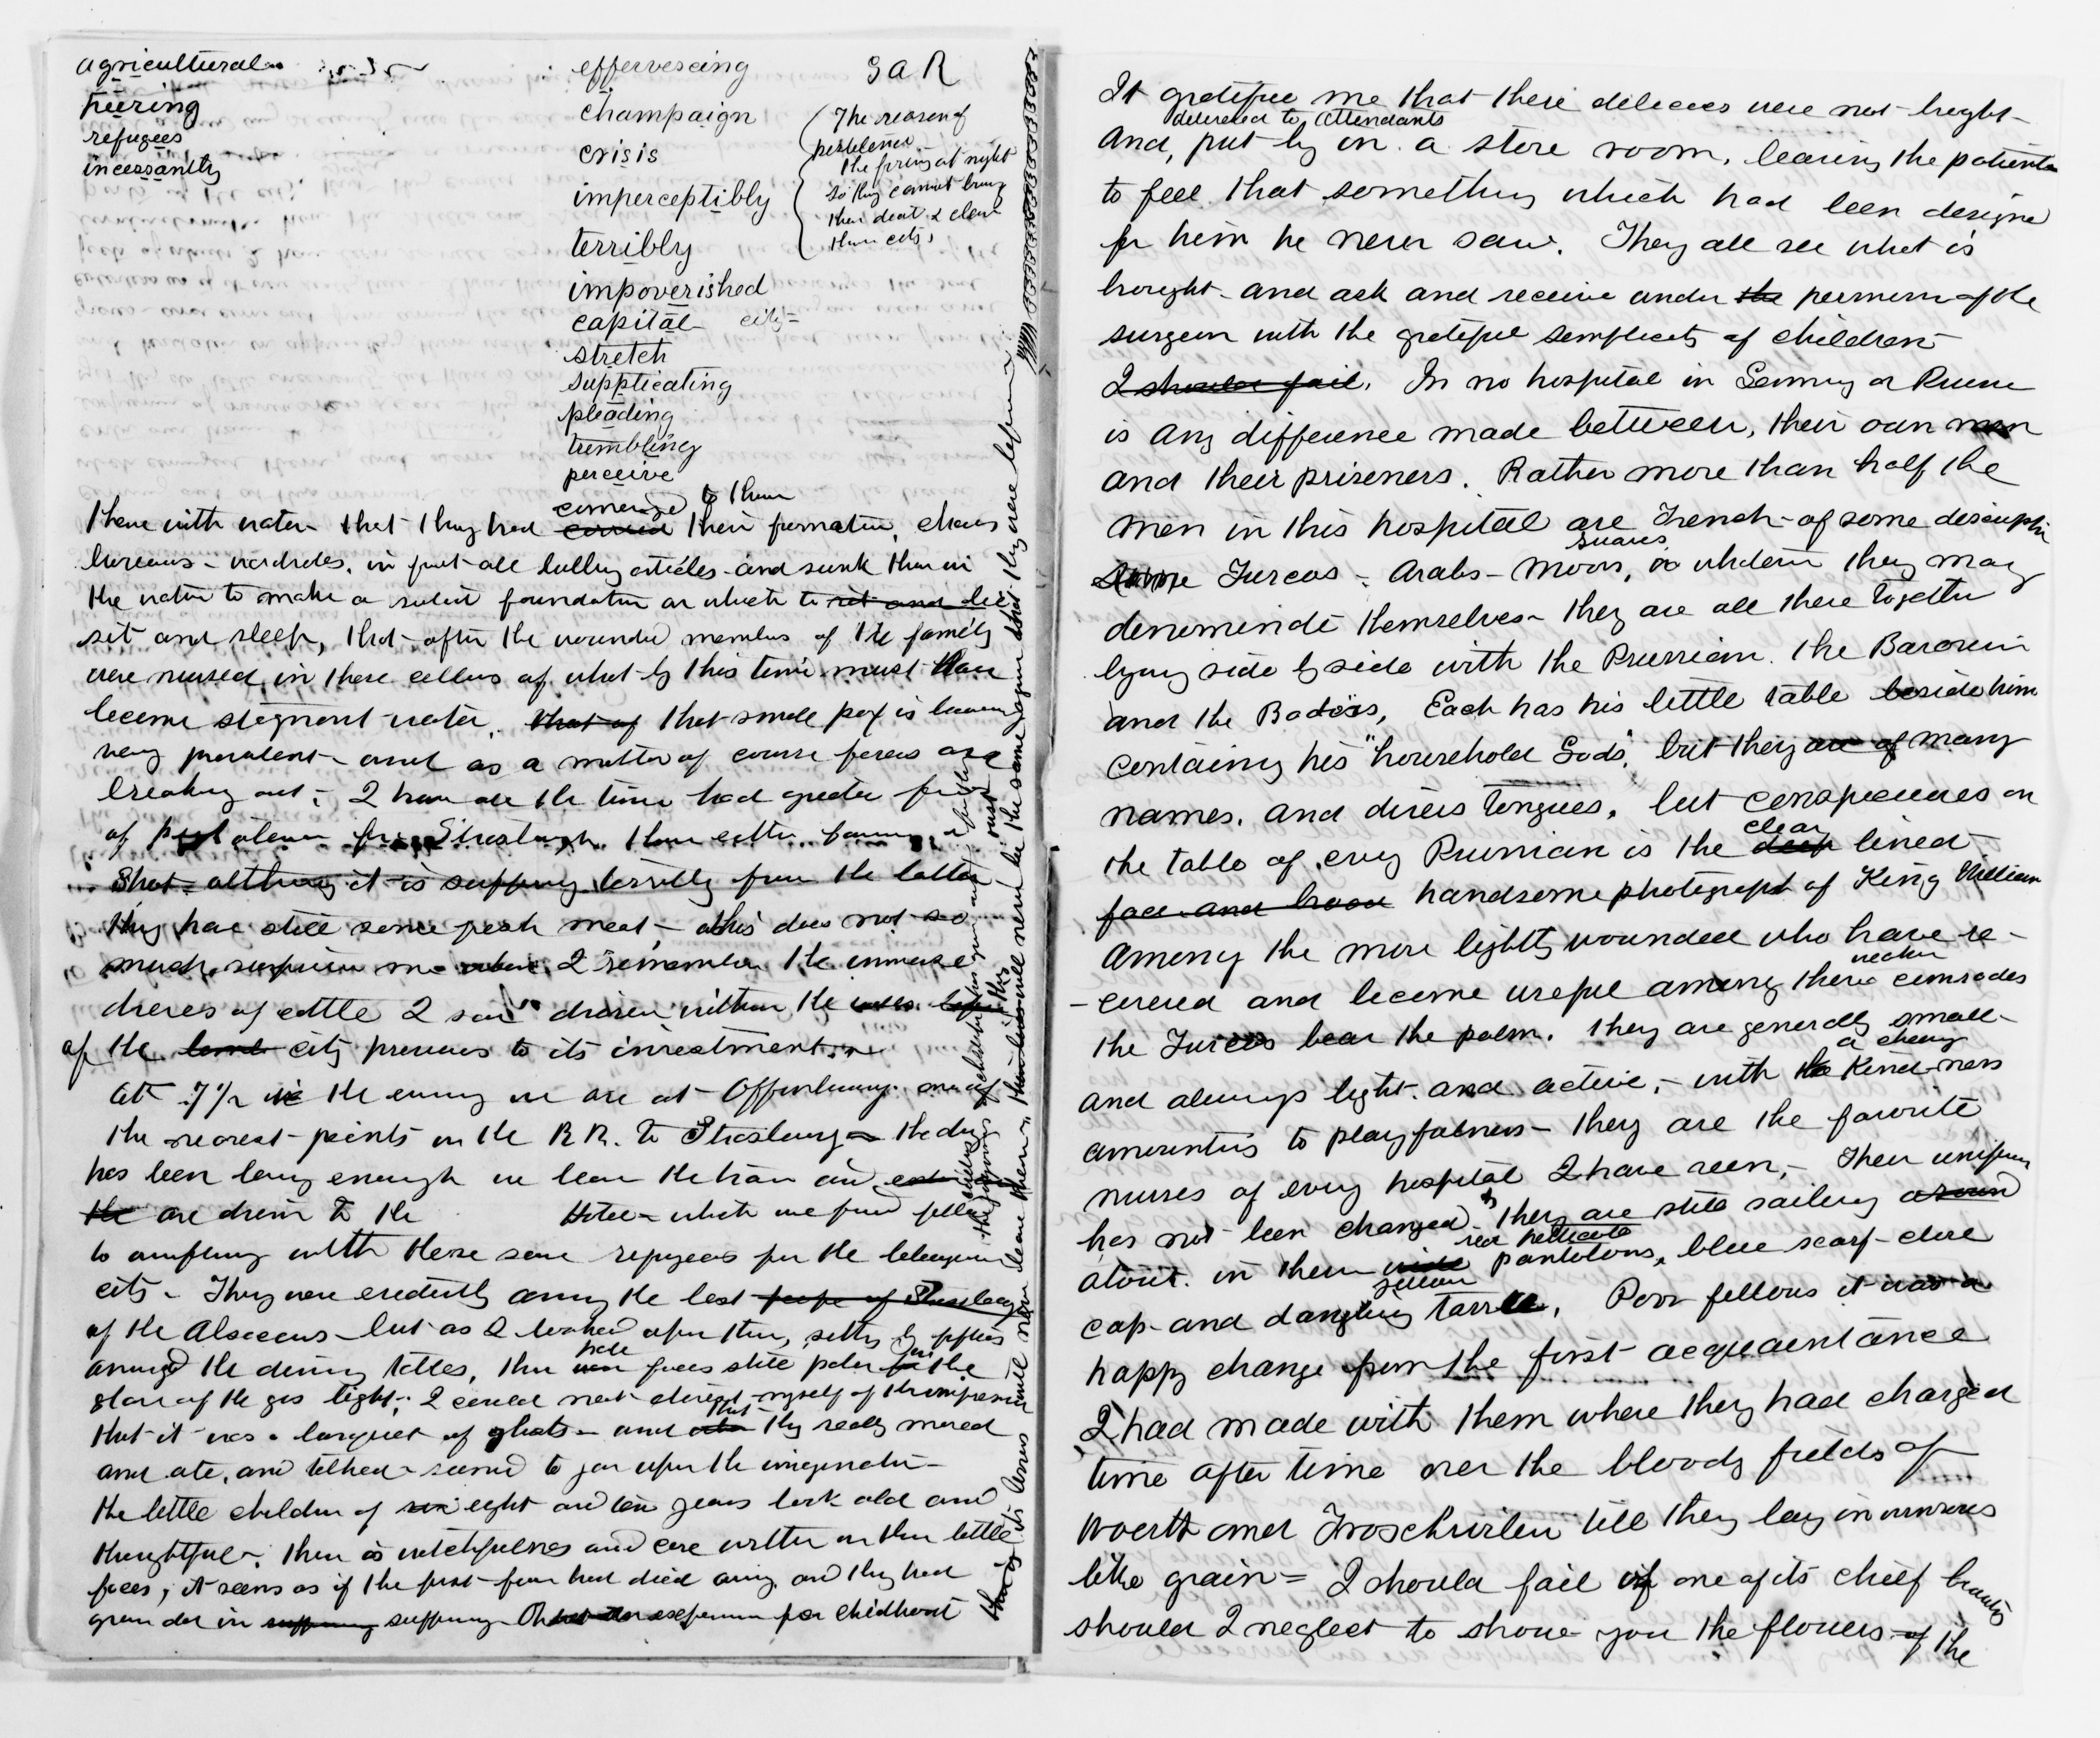 agricultural
peering
refugees
incessantly
effervescing
champaign
crisis
imperceptibly
terribly
impoverished
capital city
stretch
supplicating
pleading
trumbling
perceive
G A R
The reason of
pestilence
the firing at night
so they cannot bury
their dead & clean
their city
to them
comenced
there with water that they had carried their furniture, chairs
bureaus - wardrobes, in fact all bulky articles and sunk them in
the water to make a solid foundation on which to sit and lie
sit and sleep, that often the wounded members of the family
were nursed in these cellars of what by this time must have
become stagnent water. that of that small pox is becoming
very prevalent - and as a matter of course fevers are
breaking out - I have all the time had greater fear
of pestilence for Strasburgh than either famine or
shot - although it is suffering terribly from the latter
they have still some fresh meat - this does not so
much surprise me when I remember the immense
droves of cattle I saw driven within the walls before
of the city previous to its investment
At 7 1/2 in the evening we are at Offenburg one of
the nearest points on the R R. to Strasburg - the day
has been long enough we leave the train and
the are driven to the Hotel - which we find filled
to overflowing with these same refugees from the beleaguered
city - They were evidently among the best people of Strasburg
of the Alsacens - but as I looked upon them, setting by fifties
around the dining tables, their pale faces still paler in the
glare of the gas light, I could not divest myself of the impression
that it was a banquet of ghosts - and that they really moved
and ate, and talked - seemed to jar upon the imagination
the little children of six eight and ten years look old and
thoughtful - there is watchfulness and care written on their little
faces, it seems as if the past few had died away and they had
grown old in suffering suffering Oh
for childhood
It gratified me that these delicacies were not bought
delivered to attendants
And, put by in a store room, leaving the patients
to feel that something which had been designed
for him he never saw. They all see what is
brought and ask and receive under the permission of the
surgeon with the grateful simplicity of children
I should fail. In no hospital in Germany or Prussia
is any difference made between, their own men
and their prisoners. Rather more than half the
men in this hospital are French - of some description
suaves
Some Turcos - Arabs - Moors, or whatever they may
denominate themselves - they are all there together
lying side by side with the Prussian. the Bavarian
and the Badois, Each has his little table beside him
containing his "household Gods", but they are of many
names, and divers tongues, but conspicuous on
clear
the table of every Prussian is the deep lined
face and brow handsome photograph of King William
Among the more lightly wounded who have re-
-covered and become useful among their comrades
the Turcos bear the palm. They are generally small
a cheery
and always light and active, - with the Kindness
amounting to playfulness - they are the favorite
nurses of every hospital I have seen, - Their uniform
has not been changed & they are still sailing around
red petticoat
about in their wide pantaloons, blue scarf
yellow
cap and dangling tassel, Poor fellows it was a
happy change from the first acquaintance
I had made with them where they had charged
time after time over the bloody fields of
Woerth and Froschwilen till they lay in winrows
like grain = I should fail of one of its chief beautys
should I neglect to show you the flowers of the